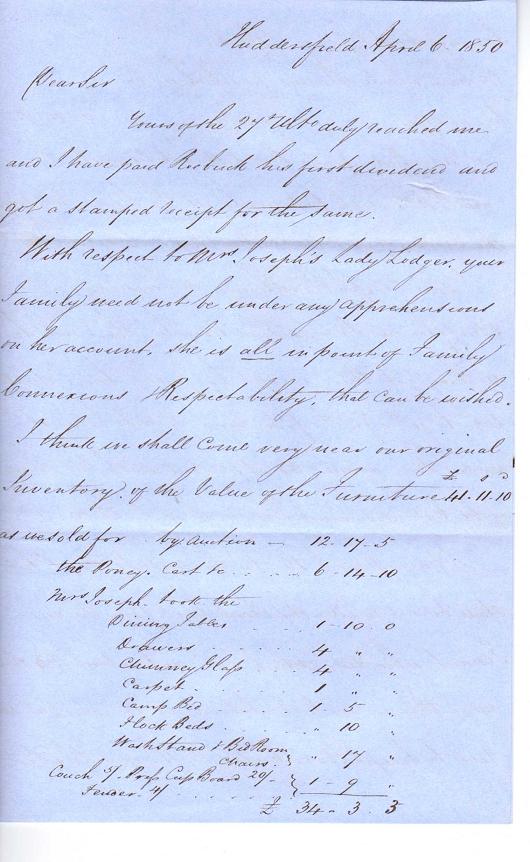 Huddersfield April 6 1850
Dear Sir
Yours of the 27th Ulto duly reached me
and I have paid Roebuck his first dividend and
got a stamped receipt for the same.
With respect to Mrs Joseph's Lady Lodger, your
Family need not be under any apprehensions
on her account, she is all in point of Family
Connexions & Respectability, that can be wished.
I think we shall come very near our original
Inventory, of the Value of the Furniture £41-11-10
as we sold for by auction — 12-17-5
the Poney. Cart &c .... 6-14-10
Mrs Joseph took the
Dining Tables .... 1-10-0
Drawers .... 4 " "
Chimney Glass 4 " "
Carpet .... 1 " "
Camp Bed .... 1-5 "
Flock Beds .... " 10 "
Wash Stand & Bed Room
Chairs. } " 17 "
Couch 5/- Press Cup Board 20/-
Fender 4/ .... } 1-9 "
£ 34-3-3